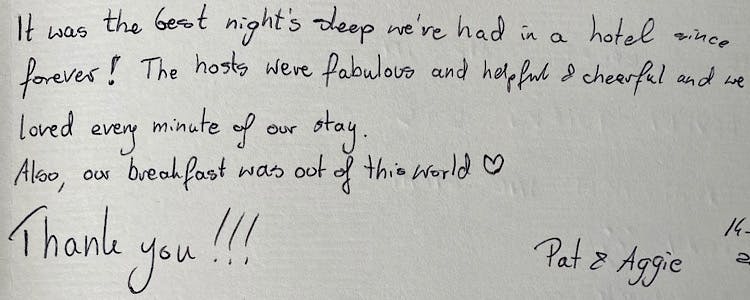 It was the best night's sleep we've had in a hotel since
forever! The hosts were fabulous and helpful & cheerful and we
loved every minute of our stay.
Also, our breakfast was out of this world ♡
Thank you !!!
14-
Pat & Aggie